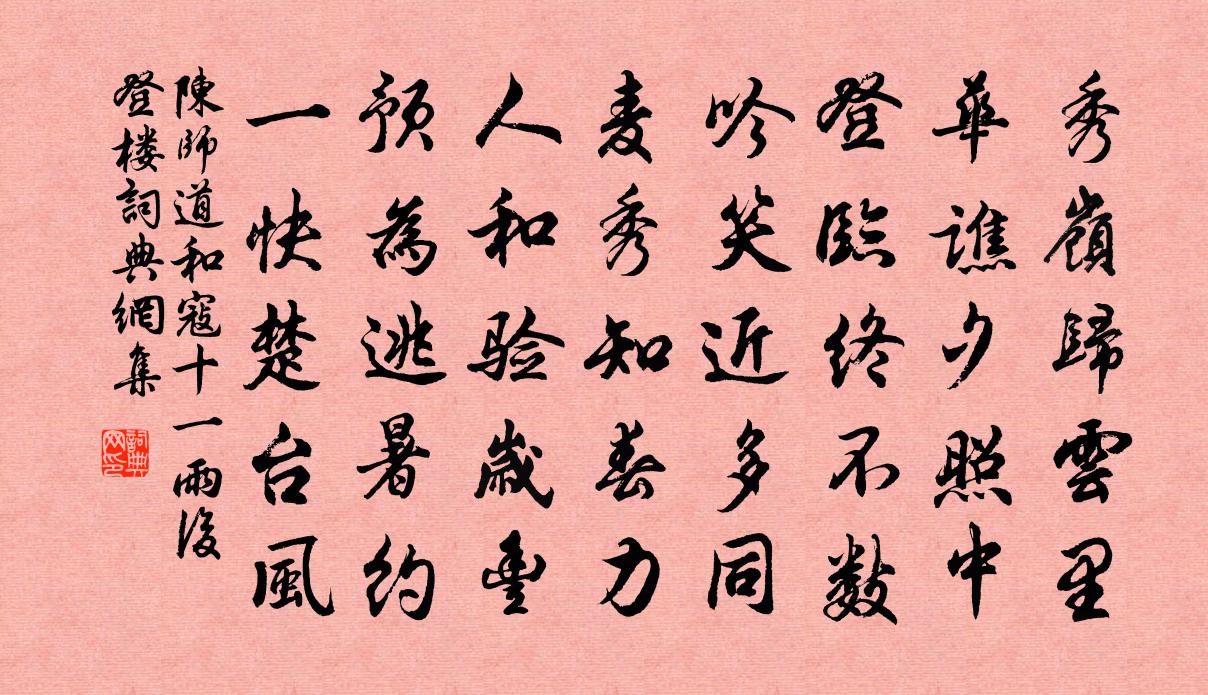 秀嶺歸雲里
華譙夕照中
登臨終不數
吟笑近多同
麦秀知春力
人和验歲豊
預為逃暑約
一快楚台風
陳師道和寇十一雨後
登楼詞典網集
詞典网印